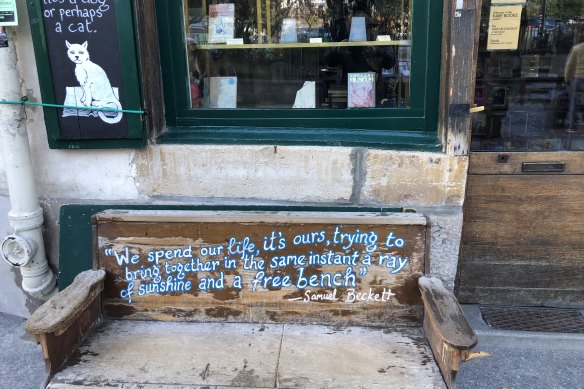 it's a dog
or perhaps
a cat.
RARE BOOKS
"We spend our life, it's ours, trying to
bring together in the same instant a ray
of sunshine and a free bench"
—Samuel Beckett